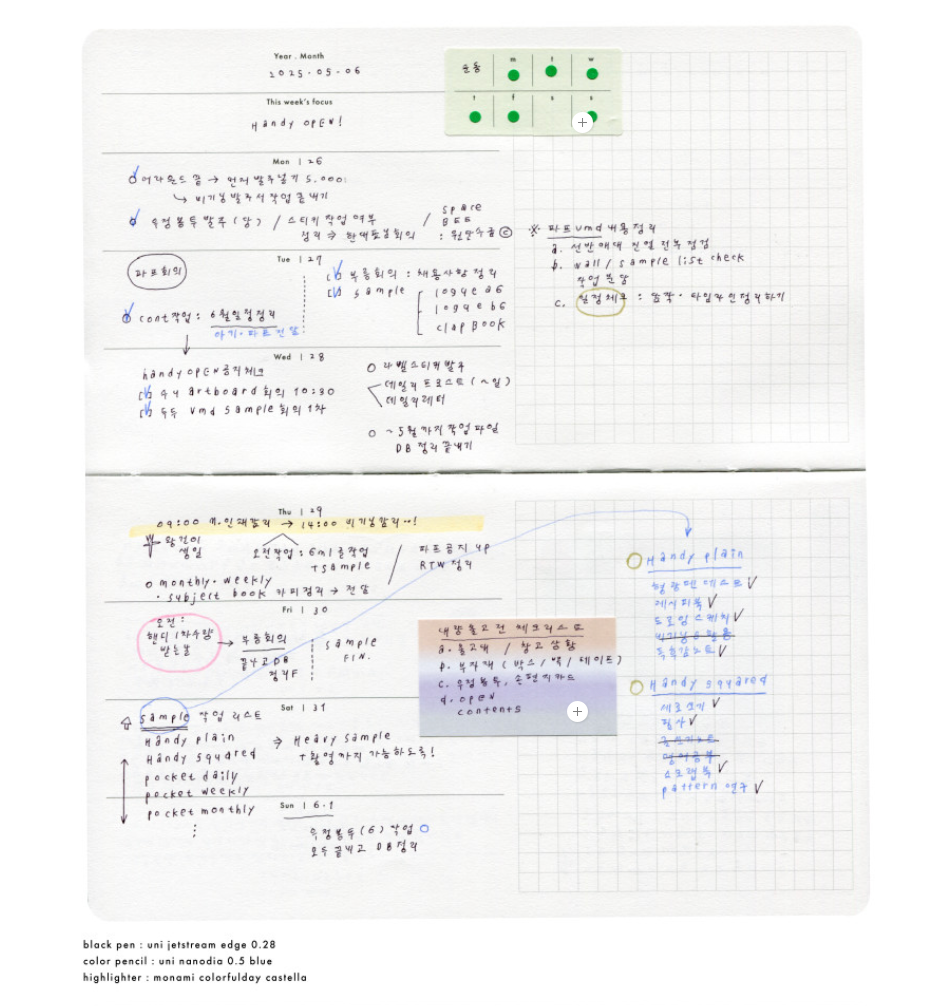 Year . Month
2025 . 05 - 06
운동
m t w
t f s s
This week's focus
Handy OPEN!
Mon | 26
어라운드 끝 → 먼저 발주넣기 5,000
↳ 비기닝 발주서 작업 끝내기
우정봉투 발주 (양) / 스티커 작업 여부
정리 ⇒ 현대토닝회의 : 원단수급 ⓒ
Tue | 27
파트회의
부동회의 : 채용사항 정리
sample
cont작업 : 6월일정정리
clap Book
Wed | 28
handy OPEN 공지체크
수요 artboard 회의 10:30
두두 vmd sample 회의 1차
라벨스티커 발주
데일리 프로스트 (~일)
데일리레터
~ 5월까지 작업 파일
DB 정리 끝내기
※ 파트 vmd 내용정리
a. 선반매대 진열 전부 점검
b. wall / sample list check
작업 분담
c. 일정체크 : 타임라인정리하기
Thu | 29
09:00 인쇄감리 → 14:00 비기닝감리..!
생일
오전작업 : 6m1
+ sample
파트공지 up
RTW 정리
monthly · weekly
· subject book 카피정리 → 전달
Fri | 30
오전 :
핸디 1차수량
받는날
→ 부동회의
끝나고 DB
정리F
sample
FIN.
내랑출고전 체크리스트
a. 출고대 / 창고 상황
b. 부자재 (박스 / 택 / 테이프)
c. 우정봉투, 손편지카드
d. open
contents
Sat | 31
sample 작업 리스트
Handy plain
Handy squared
pocket daily
pocket weekly
pocket monthly
⋮
⇒ Heavy sample
+ 촬영까지 가능하도록!
Sun | 6.1
우정봉투 (6) 작업
모두 끝내고 DB정리
Handy plain
형광펜 테스트 ✓
레시피북 ✓
드로잉 스케치 ✓
독후감노트 ✓
Handy squared
세로쓰기 ✓
필사 ✓
영어공부
스크랩북 ✓
pattern 연구 ✓
black pen : uni jetstream edge 0.28
color pencil : uni nanodia 0.5 blue
highlighter : monami colorfulday castella